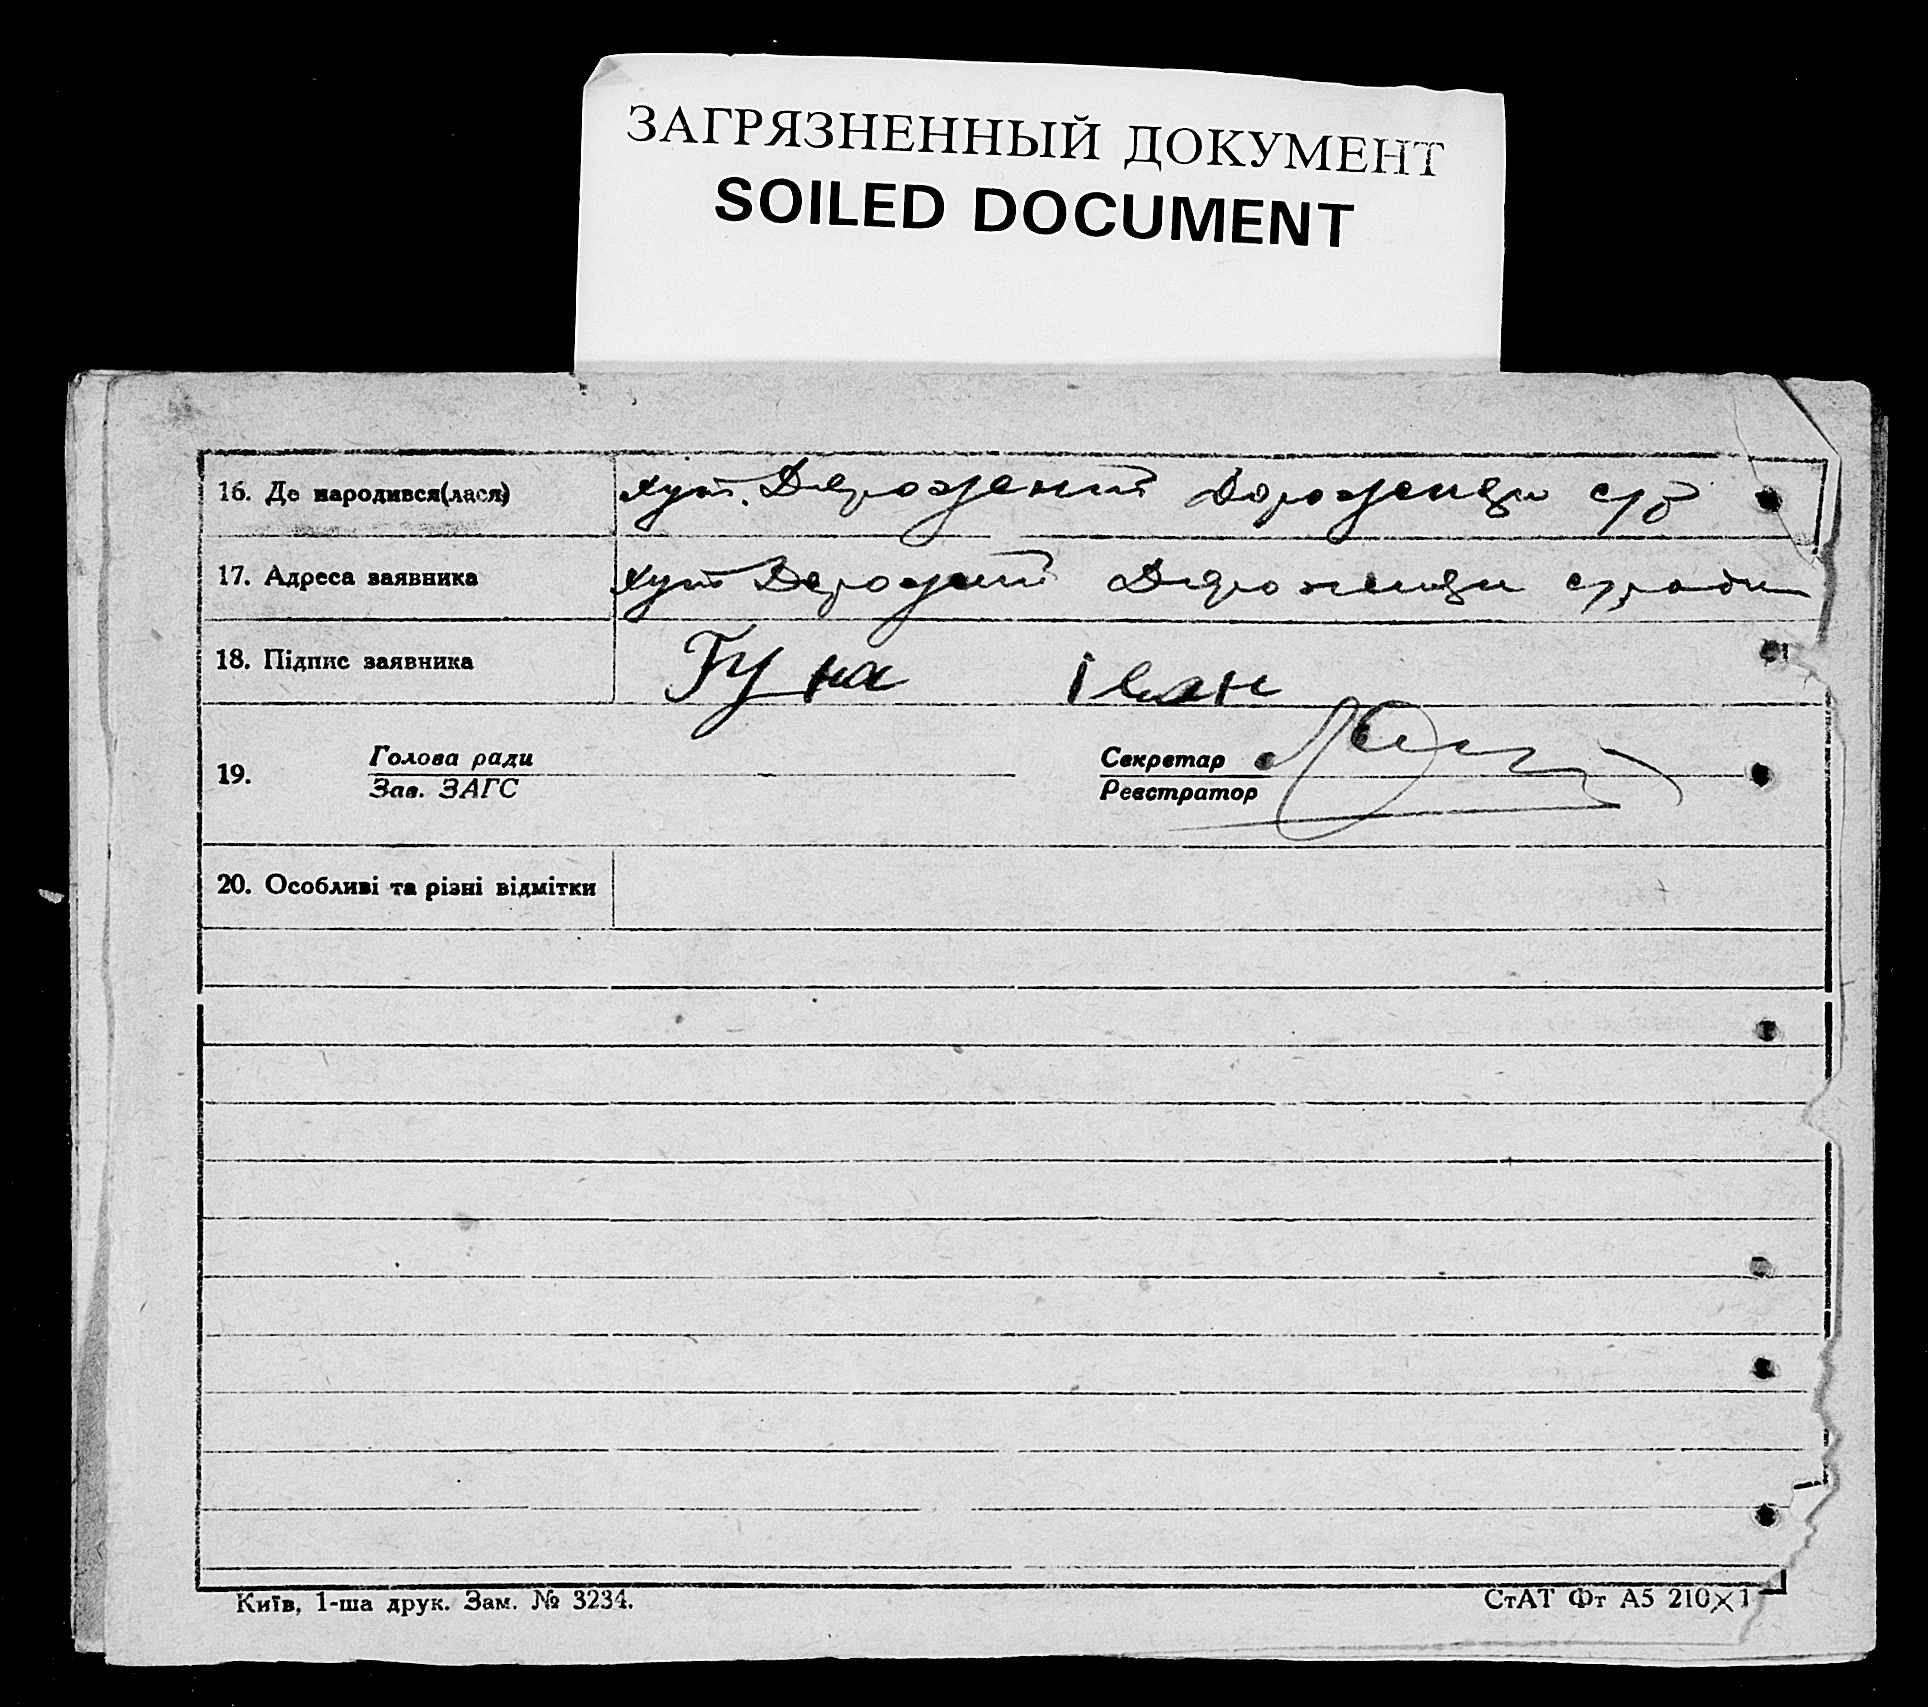 ЗАГРЯЗНЕННЫЙ ДОКУМЕНТ
SOILED DOCUMENT
16. Де народився(лася) хут.
17. Адреса заявника хут
18. Підпис заявника Гуна Іван
19. Голова ради Секретар
Зав. ЗАГС Реєстратор
20. Особливі та різні відмітки
Київ, 1-ша друк. Зам. № 3234. СтАТ Фт А5 210×1